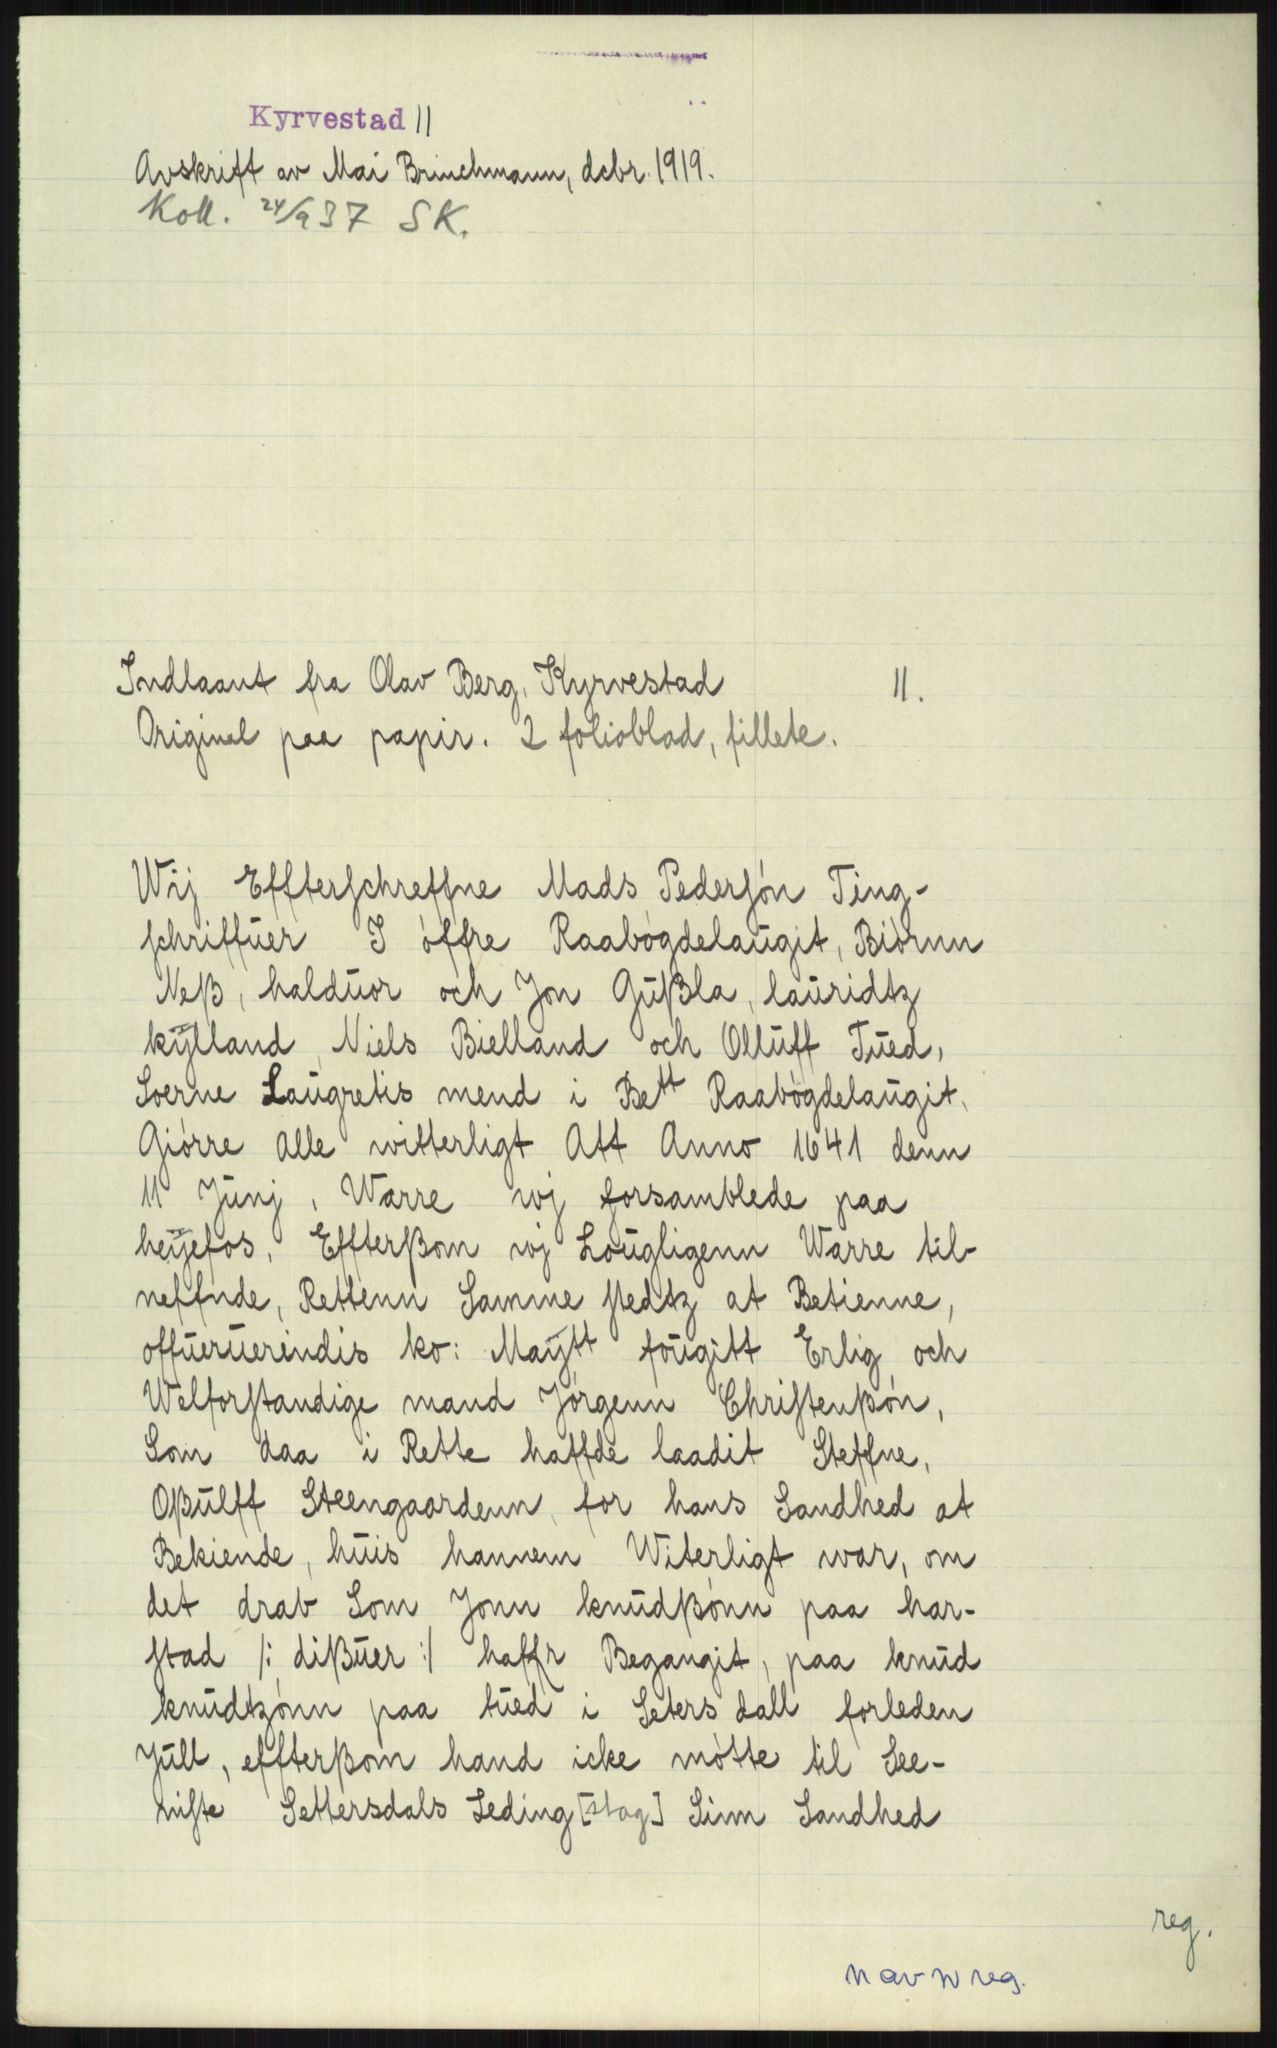 Kyrvestad 11
Avskrift av Mai Brinchmann, dcbr. 1919.
Koll. 24/9 37 SK.
Indlaant fra Olav Berg, Kyrvestad 11.
Original paa papir. 2 folioblad, fillete.
Wij Effterschreffne Mads Pedersón Ting-
schriffŭer I óffre Raabógdelaŭgit, Biórnn
Neß, haldŭor och Jon Gŭßla, laŭridtz
kÿlland, Niels Bielland och Ollŭff Tŭed,
Soerne Laŭgretis mend i Bett Raabógdelaŭgit,
Giórre Alle witterligt Att Anno 1641 denn
11 Jŭnj, Warre wj forsamblede paa
heÿefos, Effterßom wj Loŭgligenn Warre til-
neffnde, Rettenn Samme stedtz at Betienne,
offŭerŭerindis ko: Maÿtt foŭgitt Erlig och
Welforstandige mand Jórgenn Christenßón,
Som daa i Rette haffde laadit Steffne,
Oßŭlff Steengaardenn, for hans Sandhed at
Bekiende, hŭis hannem Witerligt war, om
det drab Som Jonn knŭdßónn paa har-
stad /: dißŭer :/ haffr Begangit, paa knŭd
knŭdtzónn paa tŭed i Setersdall forleden
Jŭll, effterßom hand icke mótte til See-
niste Settersdals Leding [stog] Sinn Sandhed
reg.
navnreg.